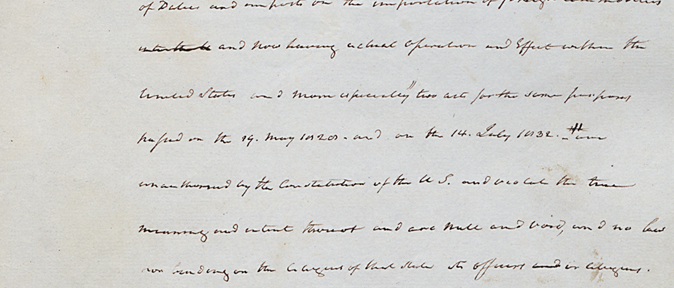 of Duties and imposts on the importation of foreign commodities
and now having actual operation and Effect within the
United States and more especially" two acts for the same purposes
passed on the 19. May 1828. and on the 14. July 1832.
unauthorised by the Constitution of the U S. and violate the true
meaning and intent thereof and are Null and Void, and no law
nor binding on the citizens of that State its officers and or citizens.